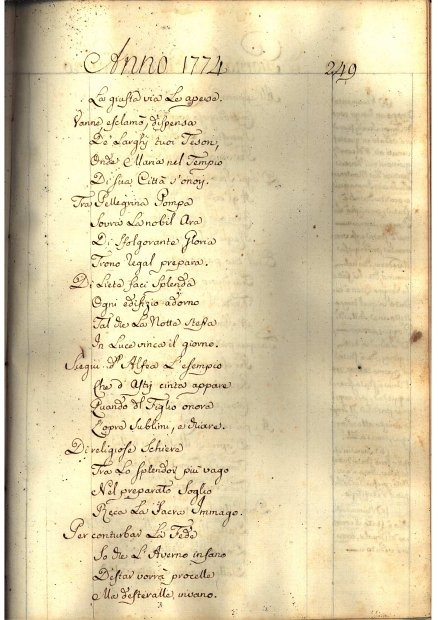 Anno 1774 249
La giusta via Le aperse.
Vanne esclamò, dispensa
De' Larghj tuoi Tesori,
Onde Maria nel Tempio
Di sua Città s'onorj.
Tra Pellegrina Pompa
Sovra La nobil Ara
Di sfolgorante Gloria
Trono regal prepara.
Di Liete faci splenda
Ogni edifizio adorno
Tal che La Notte stessa
In Luce vinca il giorno.
Siegui d' Alfea L'esempio
Che d' Astrj cinta appare
Quando del Figlio onora
L'opre sublimi, e chiare.
Di religiose schiere
Tra Lo splendor più vago
Nel preparato Soglio
Reca La Sacra Immago.
Per conturbar La Fede
So che L'Averno insano
Destar vorrà procelle
Ma desteralle invano.